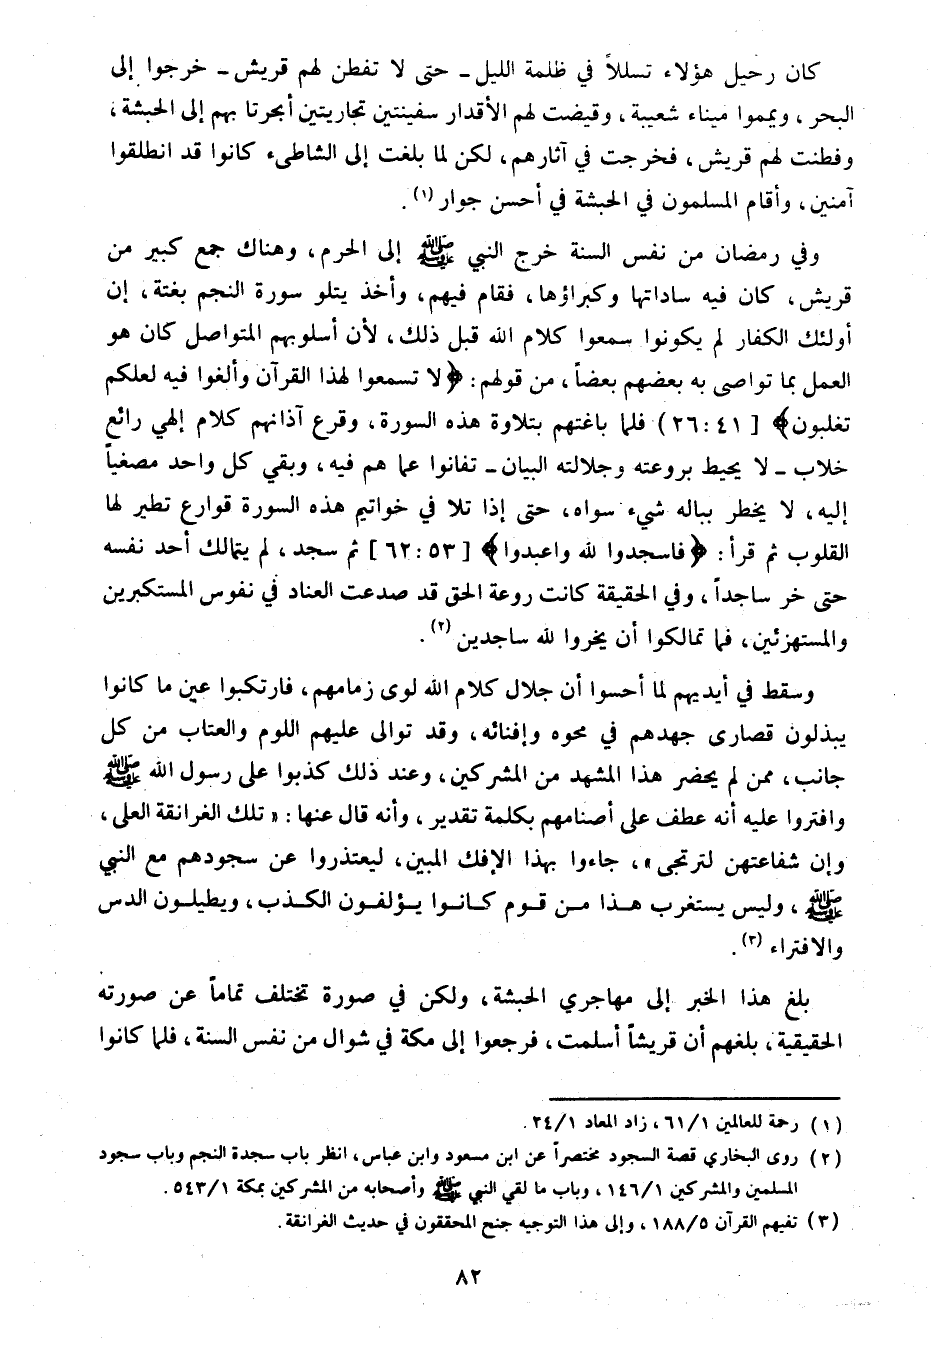 كان رحيل هؤلاء تسللاً في ظلمة الليل ـ حتى لا تفطن لهم قريش ـ خرجوا إلى
البحر، ويمموا ميناء شعيبة، وقيضت لهم الأقدار سفينتين تجاريتين أبحرتا بهم إلى الحبشة،
وفطنت لهم قريش، فخرجت في آثارهم، لكن لما بلغت إلى الشاطىء كانوا قد انطلقوا
آمنين، وأقام المسلمون في الحبشة في أحسن جوار (١).
وفي رمضان من نفس السنة خرج النبي ﷺ إلى الحرم، وهناك جمع كبير من
قريش، كان فيه ساداتها وكبراؤها، فقام فيهم، وأخذ يتلو سورة النجم بغتة، إن
أولئك الكفار لم يكونوا سمعوا كلام الله قبل ذلك، لأن أسلوبهم المتواصل كان هو
العمل بما تواصى به بعضهم بعضاً، من قولهم: ﴿لا تسمعوا لهذا القرآن وألغوا فيه لعلكم
تغلبون﴾ [٢٦:٤١) فلما باغتهم بتلاوة هذه السورة، وقرع آذانهم كلام إلهي رائع
خلاب ـ لا يحيط بروعته وجلالته البيان ـ تفانوا عما هم فيه، وبقي كل واحد مصغياً
إليه، لا يخطر بباله شيء سواه، حتى إذا تلا في خواتيم هذه السورة قوارع تطير لها
القلوب ثم قرأ: ﴿فاسجدوا لله واعبدوا﴾ [٦٢:٥٣] ثم سجد، لم يتمالك أحد نفسه
حتى خر ساجداً، وفي الحقيقة كانت روعة الحق قد صدعت العناد في نفوس المستكبرين
والمستهزئين، فما تمالكوا أن يخروا لله ساجدين (٢).
وسقط في أيديهم لما أحسوا أن جلال كلام الله لوى زمامهم، فارتكبوا عين ما كانوا
يبذلون قصارى جهدهم في محوه وإفنائه، وقد توالى عليهم اللوم والعتاب من كل
جانب، ممن لم يحضر هذا المشهد من المشركين، وعند ذلك كذبوا على رسول الله ﷺ
وافتروا عليه أنه عطف على أصنامهم بكلمة تقدير، وأنه قال عنها: «تلك الغرانقة العلى،
وإن شفاعتهن لترتجى»، جاءوا بهذا الإفك المبين، ليعتذروا عن سجودهم مع النبي
ﷺ، وليس يستغرب هذا من قوم كانوا يؤلفون الكذب، ويطيلون الدس
والافتراء (٣).
بلغ هذا الخبر إلى مهاجري الحبشة، ولكن في صورة تختلف تماماً عن صورته
الحقيقية، بلغهم أن قريشاً أسلمت، فرجعوا إلى مكة في شوال من نفس السنة، فلما كانوا
(١) رحمة للعالمين ٦١/١، زاد المعاد ٢٤/١.
(٢) روى البخاري قصة السجود مختصراً عن ابن مسعود وابن عباس، انظر باب سجدة النجم وباب سجود
المسلمين والمشركين ١٤٦/١، وباب ما لقي النبي ﷺ وأصحابه من المشركين بمكة ٥٤٣/١.
(٣) تفهيم القرآن ١٨٨/٥، وإلى هذا التوجيه جنح المحققون في حديث الغرانقة.
٨٢